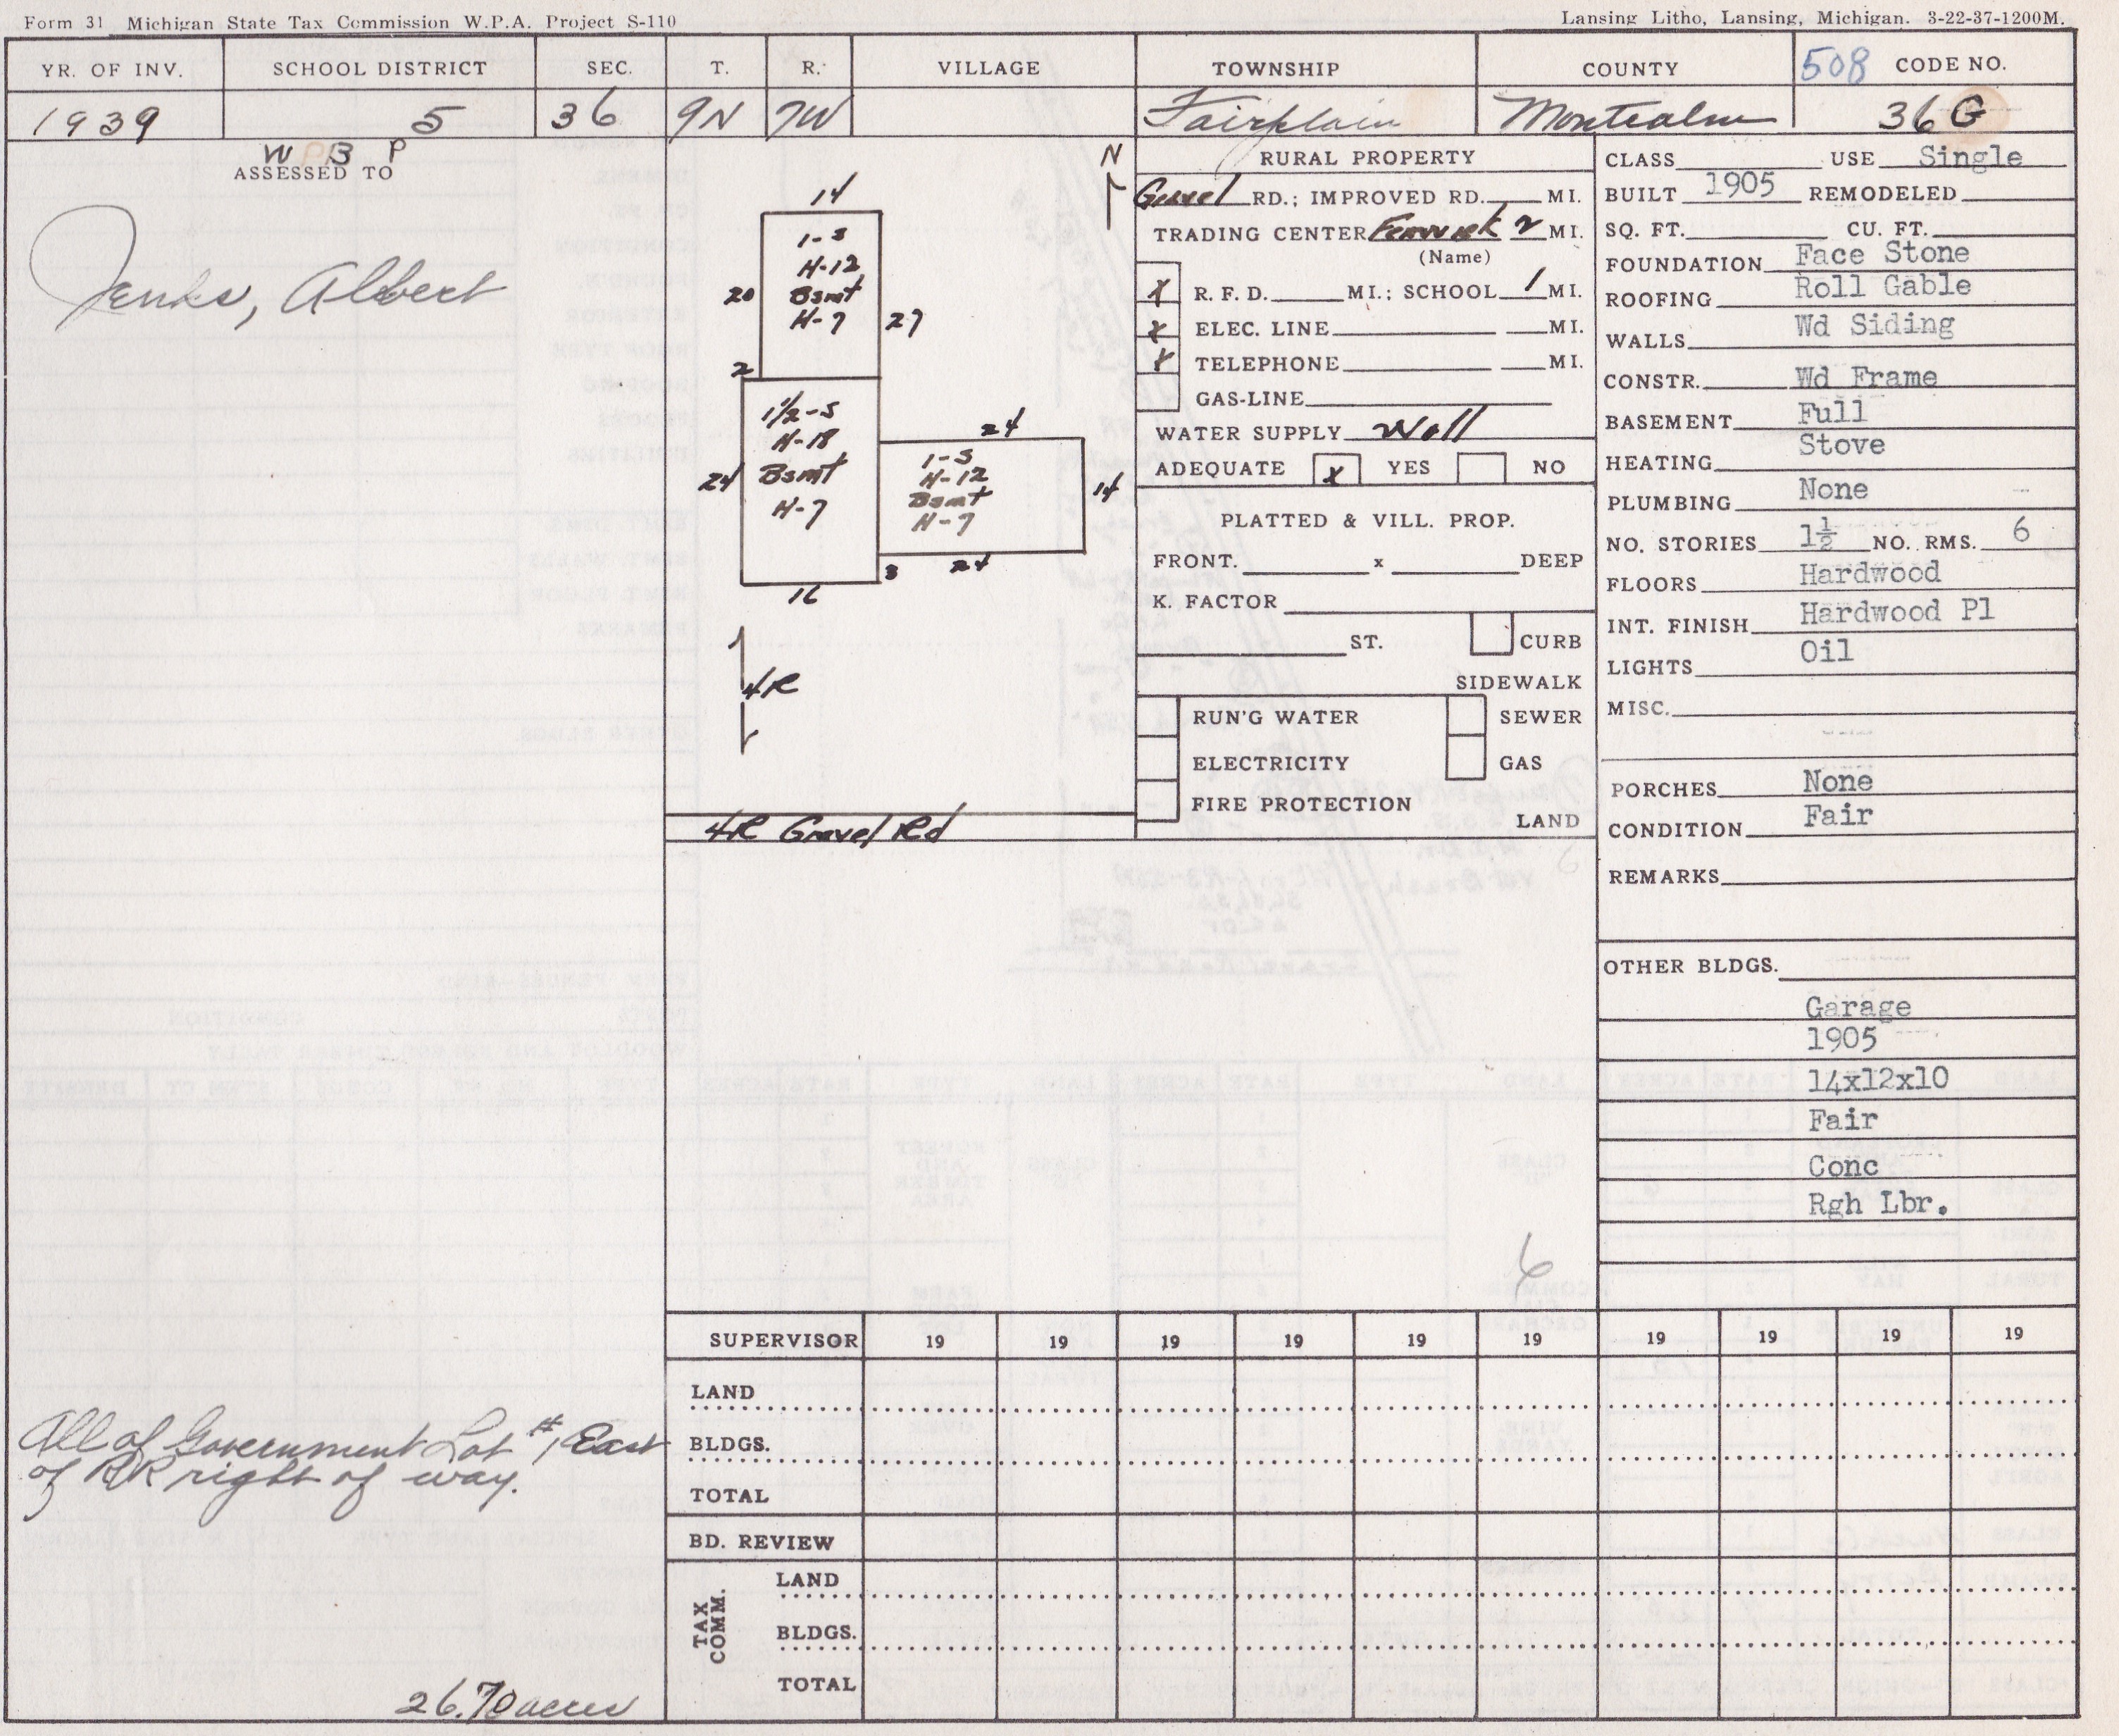 Form 31 Michigan State Tax Commission W.P.A. Project S-110
Lansing Litho, Lansing, Michigan. 3-22-37-1200M.
YR. OF INV. SCHOOL DISTRICT SEC. T. R. VILLAGE TOWNSHIP COUNTY 508 CODE NO.
1939 5 36 9N 7W Fairplain Montcalm 36 G
W B P
ASSESSED TO
Jenks, Albert
All of Government Lot #1, East
of RR right of way.
26.70 acres
N
14
1-S
H-12
Bsmt
H-7
20
27
2
1½-S
H-18
Bsmt
H-7
24
24
1-S
H-12
Bsmt
H-7
14
3
24
16
4R
4R Gravel Rd
RURAL PROPERTY
Gravel RD.; IMPROVED RD. MI.
TRADING CENTER Fenwick 2 MI.
(Name)
x R. F. D. MI.; SCHOOL 1 MI.
x ELEC. LINE MI.
x TELEPHONE MI.
GAS-LINE
WATER SUPPLY Well
ADEQUATE x YES NO
PLATTED & VILL. PROP.
FRONT. x DEEP
K. FACTOR
ST. CURB
SIDEWALK
RUN'G WATER SEWER
ELECTRICITY GAS
FIRE PROTECTION
LAND
6
CLASS USE Single
BUILT 1905 REMODELED
SQ. FT. CU. FT.
FOUNDATION Face Stone
ROOFING Roll Gable
WALLS Wd Siding
CONSTR. Wd Frame
BASEMENT Full
HEATING Stove
PLUMBING None
NO. STORIES 1½ NO. RMS. 6
FLOORS Hardwood
INT. FINISH Hardwood Pl
LIGHTS Oil
MISC.
PORCHES None
CONDITION Fair
REMARKS
OTHER BLDGS.
Garage
1905
14x12x10
Fair
Conc
Rgh Lbr.
SUPERVISOR 19 19 19 19 19 19 19 19 19 19
LAND
BLDGS.
TOTAL
BD. REVIEW
TAX COMM.
LAND
BLDGS.
TOTAL